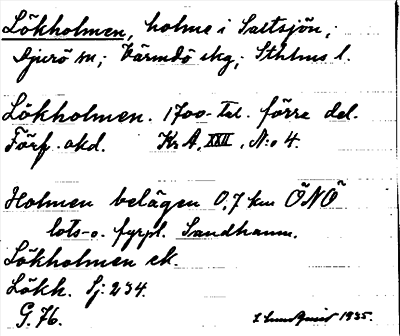 Lökholmen, holme i Saltsjön,
Djurö sn; Värmdö skg; Sthlms l.
Lökholmen. 1700-tal. förra del.
Förf. okd. Kr A, XXII, N:o 4.
Holmen belägen 0,7 km ÖNÖ
lots- o. fyrpl. Sandhamn.
Lökholmen ek.
Lökh. Sj: 234.
G. 76.
1935.